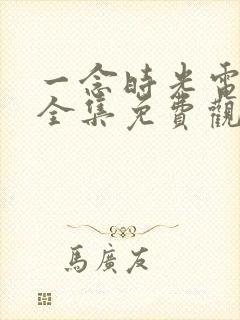 一念時光電
全集免費觀
馬廣友